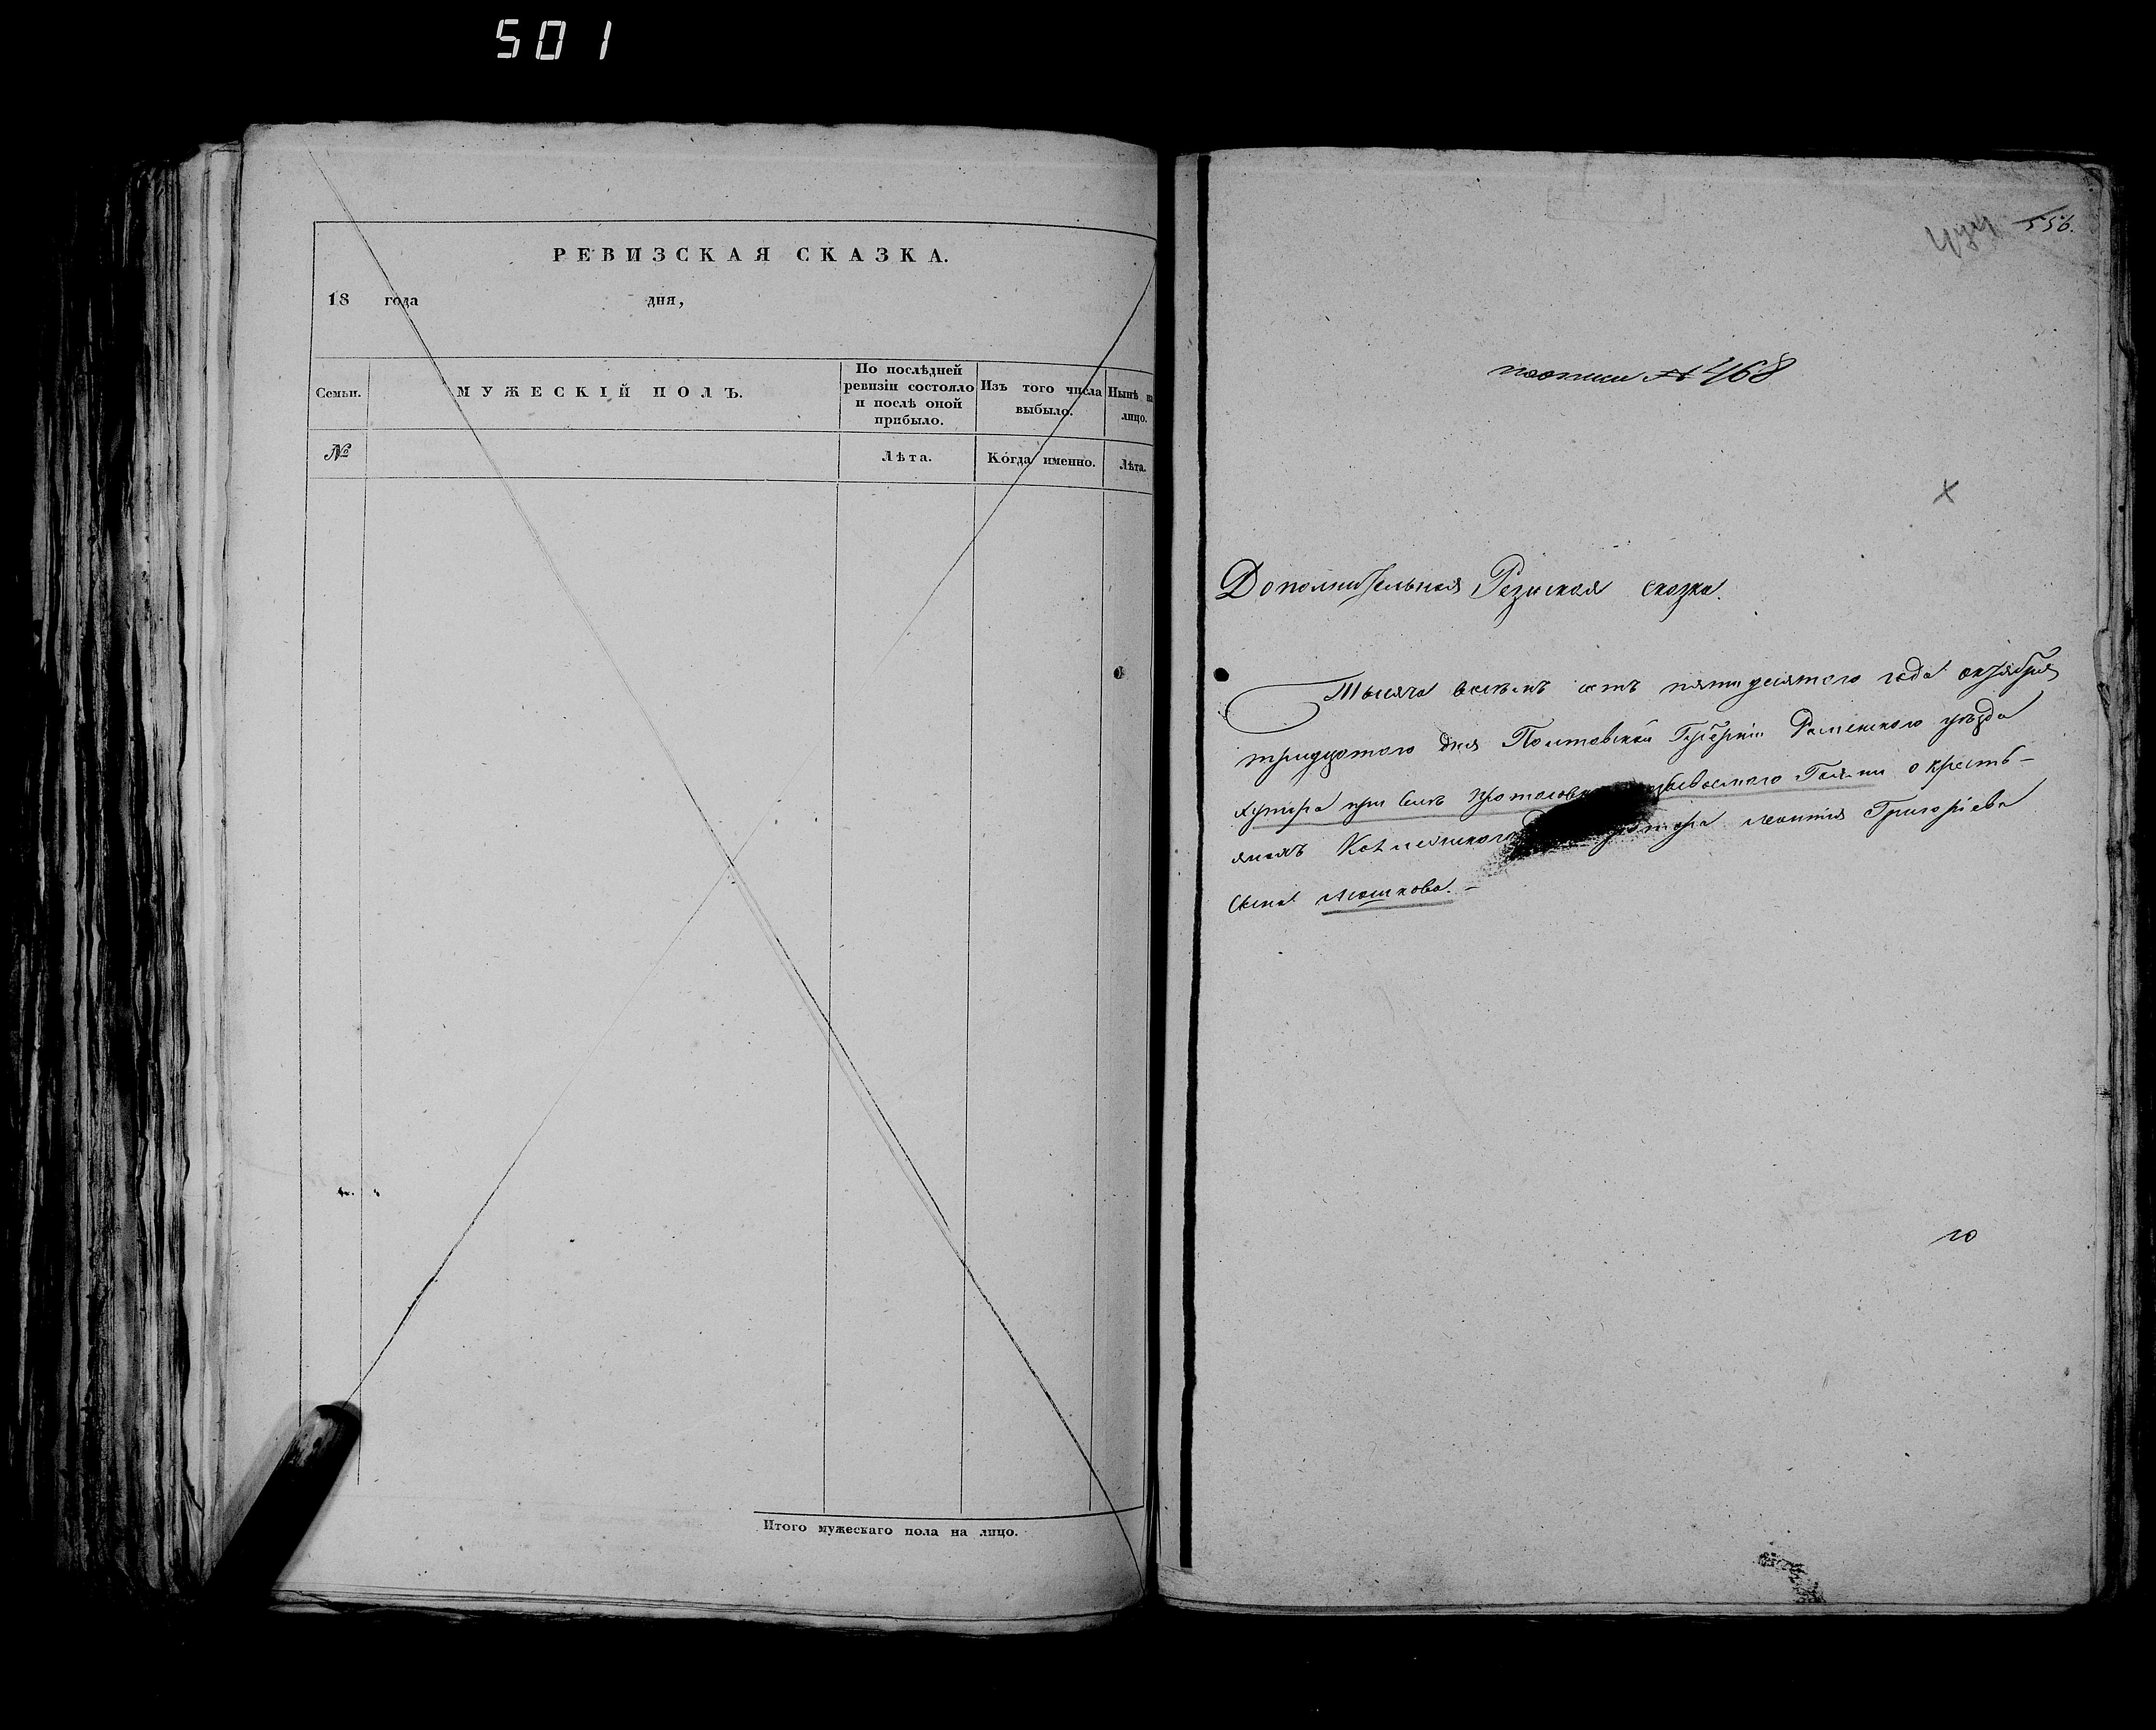 501
РЕВИЗСКАЯ СКАЗКА.
18 года дня,
Семьи. МУЖЕСКІЙ ПОЛЪ. По послѣдней ревизіи состояло и послѣ оной прибыло. Изъ того числа выбыло. Нынѣ на лицо.
№ Лѣта. Когда именно. Лѣта.
Итого мужескаго пола на лицо.
556.
№ 468
Дополнительная Резиская сказка.
Тысяча восемъ сотъ пятидесятого года октября
тридцатого дня Полтавской Губерніи Роменского уѣзда
хутора при селѣ о кресть-
янахъ Григоріева
сина Мошкова.